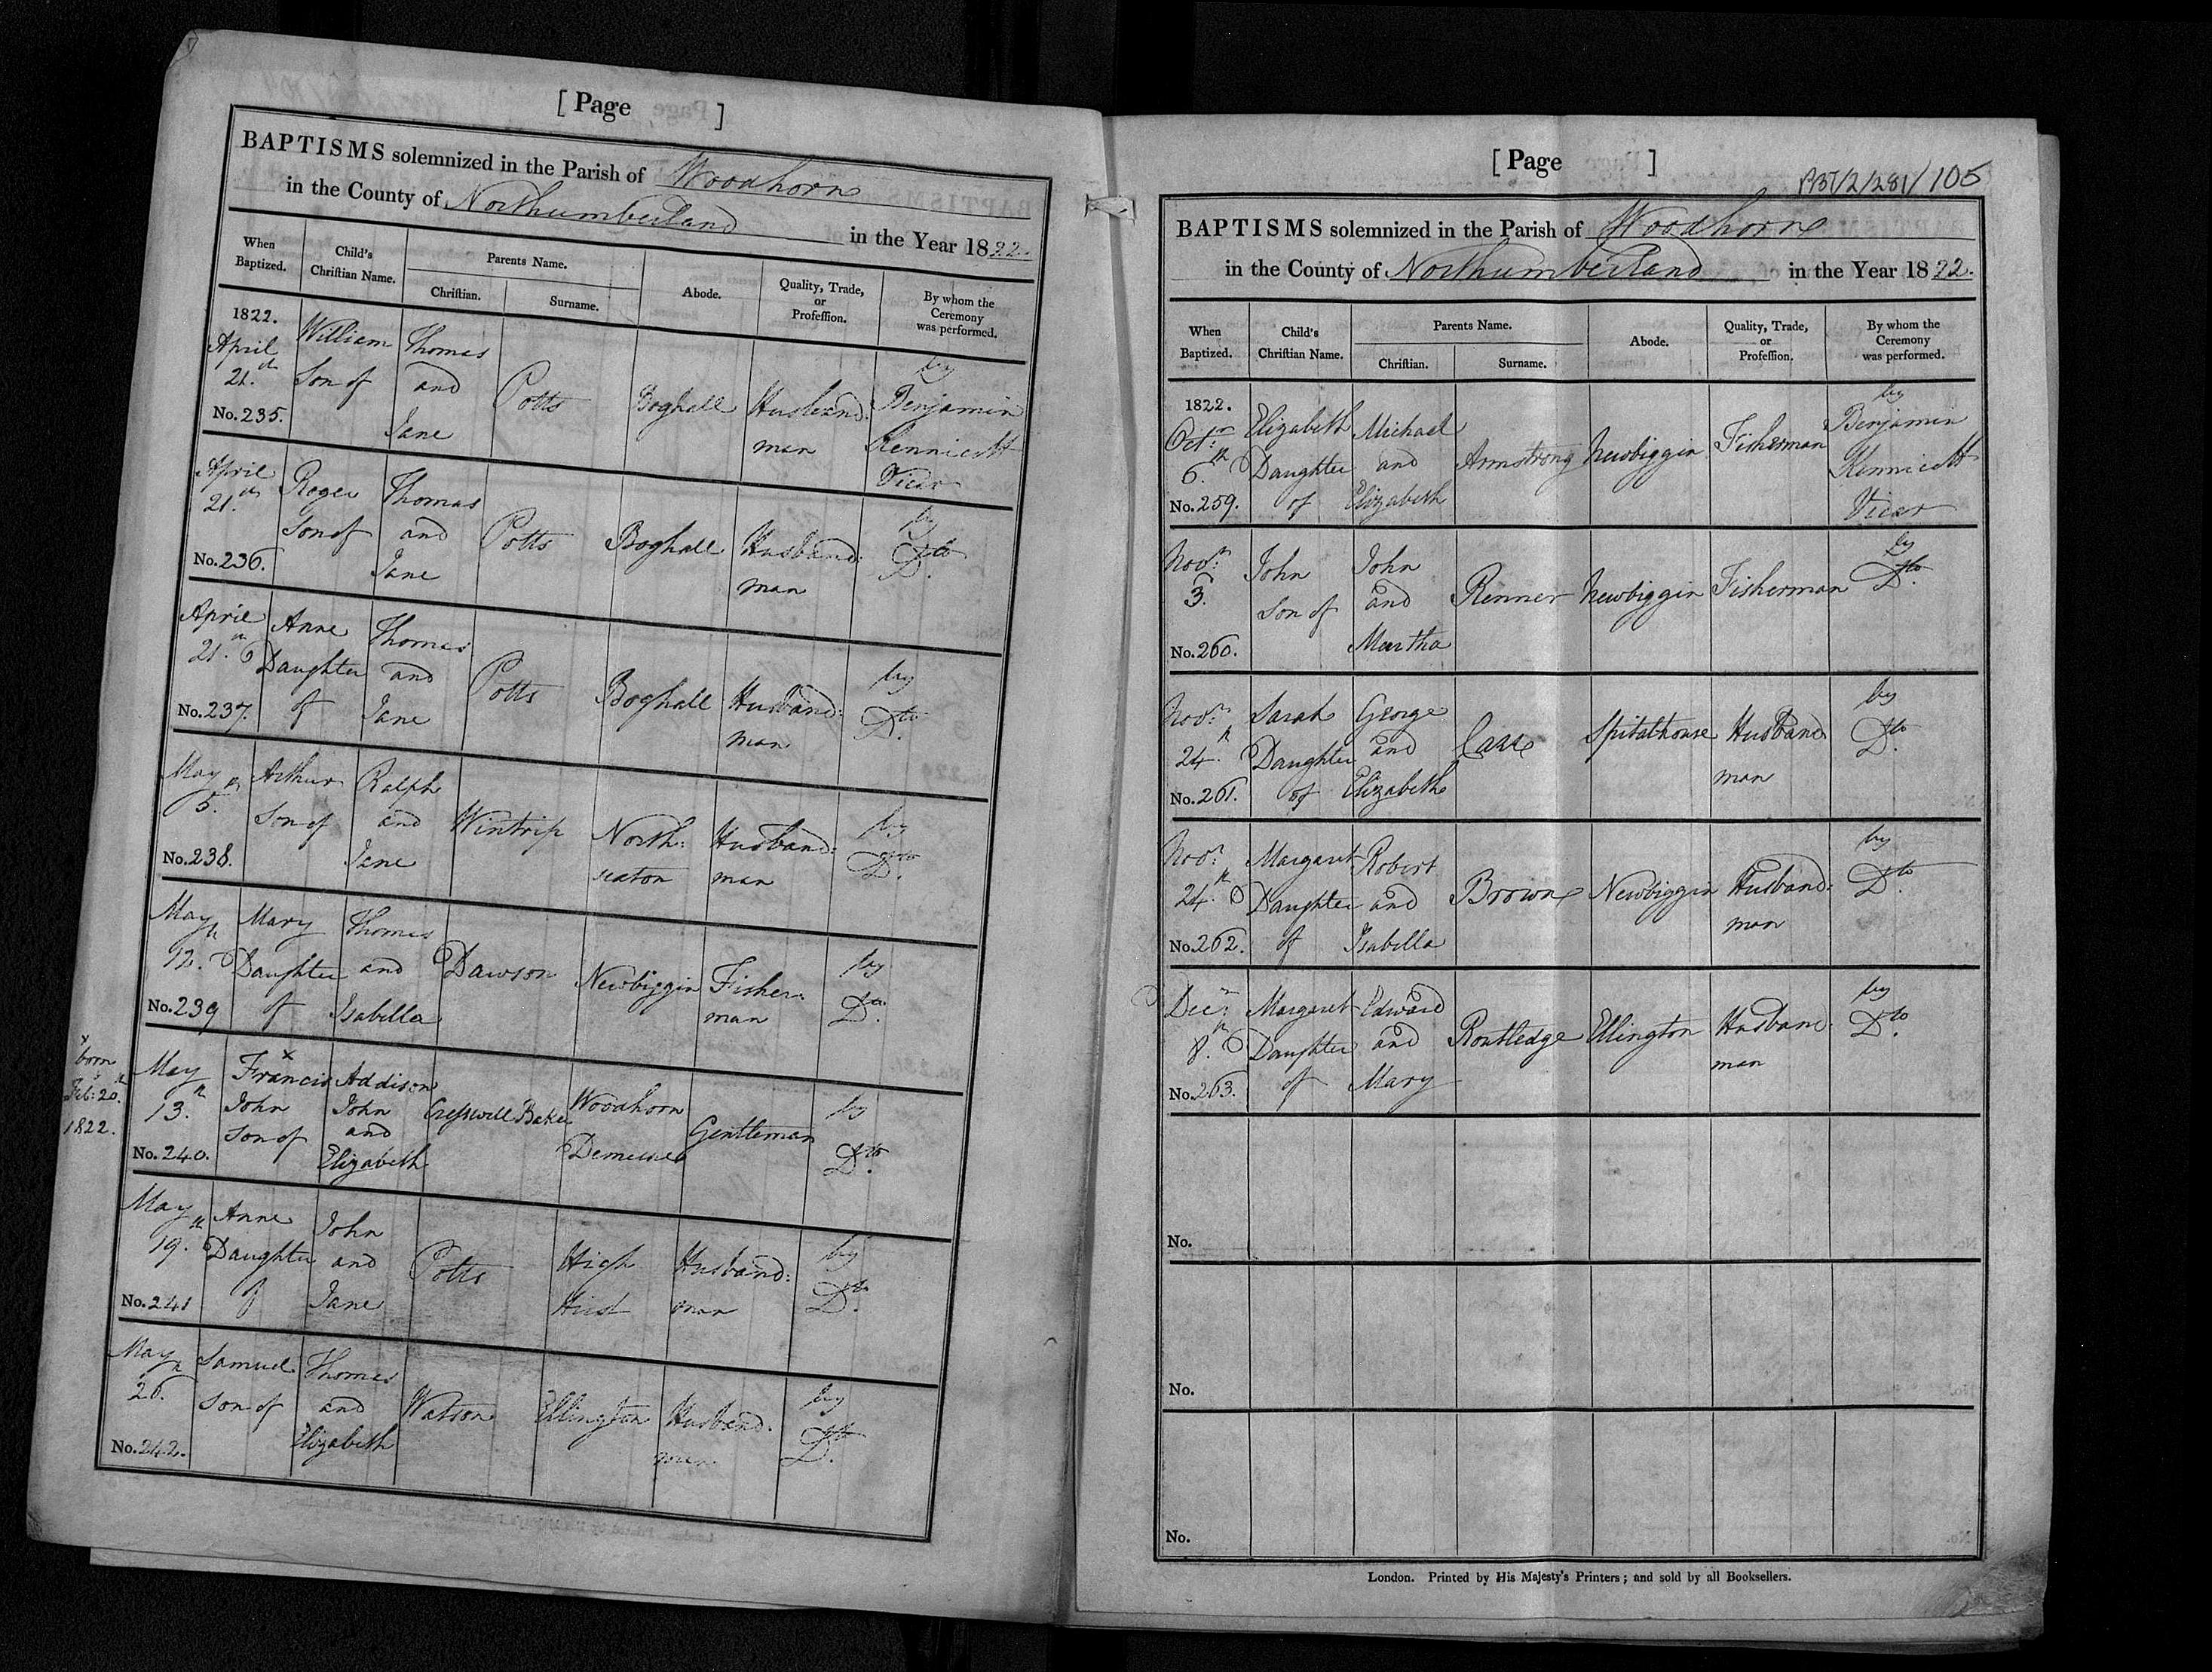 [ Page ]
BAPTISMS solemnized in the Parish of Woodhorn
in the County of Northumberland in the Year 1822.
When Baptized.
Child's Christian Name.
Parents Name.
Christian.
Surname.
Abode.
Quality, Trade, or Profession.
By whom the Ceremony was performed.
1822.
April 21.st
No. 235.
William Son of
Thomas and Jane
Potts
Boghall
Husband: man
by Benjamin Kennicott Vicar
April 21.st
No. 236.
Roger Son of
Thomas and Jane
Potts
Boghall
Husband: man
by Dto.
April 21.st
No. 237.
Anne Daughter of
Thomas and Jane
Potts
Boghall
Husband: man
by Dto.
May 5.th
No. 238.
Arthur Son of
Ralph and Jane
Wintrip
North: seaton
Husband: man
by Dto.
May 12.th
No. 239
Mary Daughter of
Thomas and Isabella
Dawson
Newbiggin
Fisher: man
by Dto.
x born Feb: 20.th 1822.
May 13.th
No. 240.
Francis x John Son of
Addison John and Elizabeth
Cresswell Baker
Woodhorn Demesne
Gentleman
by Dto.
May 19.th
No. 241
Anne Daughter of
John and Jane
Potts
High Hirst
Husband: man
by Dto.
May 26.th
No. 242.
Samuel Son of
Thomas and Elizabeth
Watson
Ellington
Husband: man
by Dto.
[ Page ]
/2/281/105
BAPTISMS solemnized in the Parish of Woodhorn
in the County of Northumberland in the Year 1822.
When Baptized.
Child's Christian Name.
Parents Name.
Christian.
Surname.
Abode.
Quality, Trade, or Profession.
By whom the Ceremony was performed.
1822.
Oct:r 6.th
No. 259.
Elizabeth Daughter of
Michael and Elizabeth
Armstrong
Newbiggin
Fisherman
by Benjamin Kennicott Vicar
Nov:r 3.
No. 260.
John Son of
John and Martha
Renner
Newbiggin
Fisherman
by Dto.
Nov:r 24.th
No. 261.
Sarah Daughter of
George and Elizabeth
Carr
Spitalhouse
Husband man
by Dto.
Nov:r 24.th
No. 262.
Margaret Daughter of
Robert and Isabella
Brown
Newbiggin
Husband: man
by Dto.
Dec:r 8.th
No. 263.
Margaret Daughter of
Edward and Mary
Routledge
Ellington
Husband: man
by Dto.
No.
No.
No.
London. Printed by His Majesty's Printers; and sold by all Booksellers.